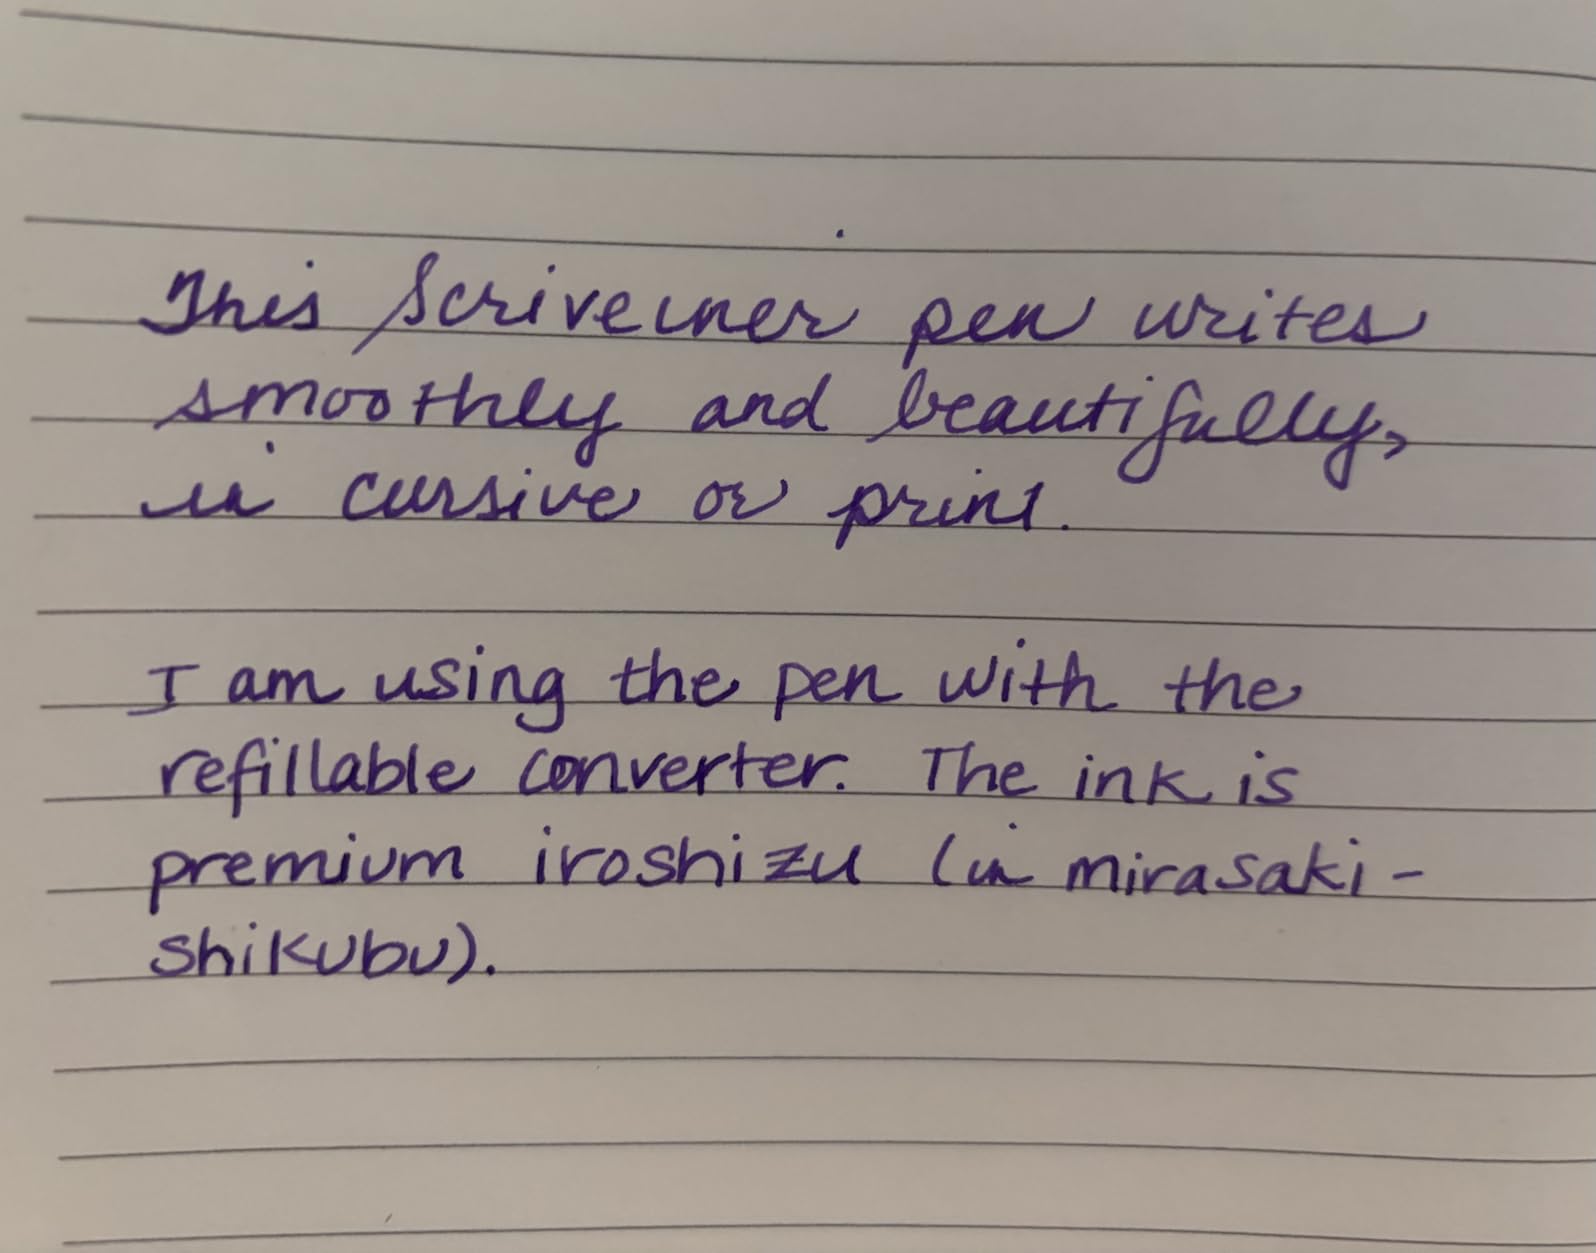 This Scriveiner pen writes
smoothly and beautifully,
in cursive or print.
I am using the pen with the
refillable converter. The ink is
premium iroshizu (in mirasaki-
shikubu).